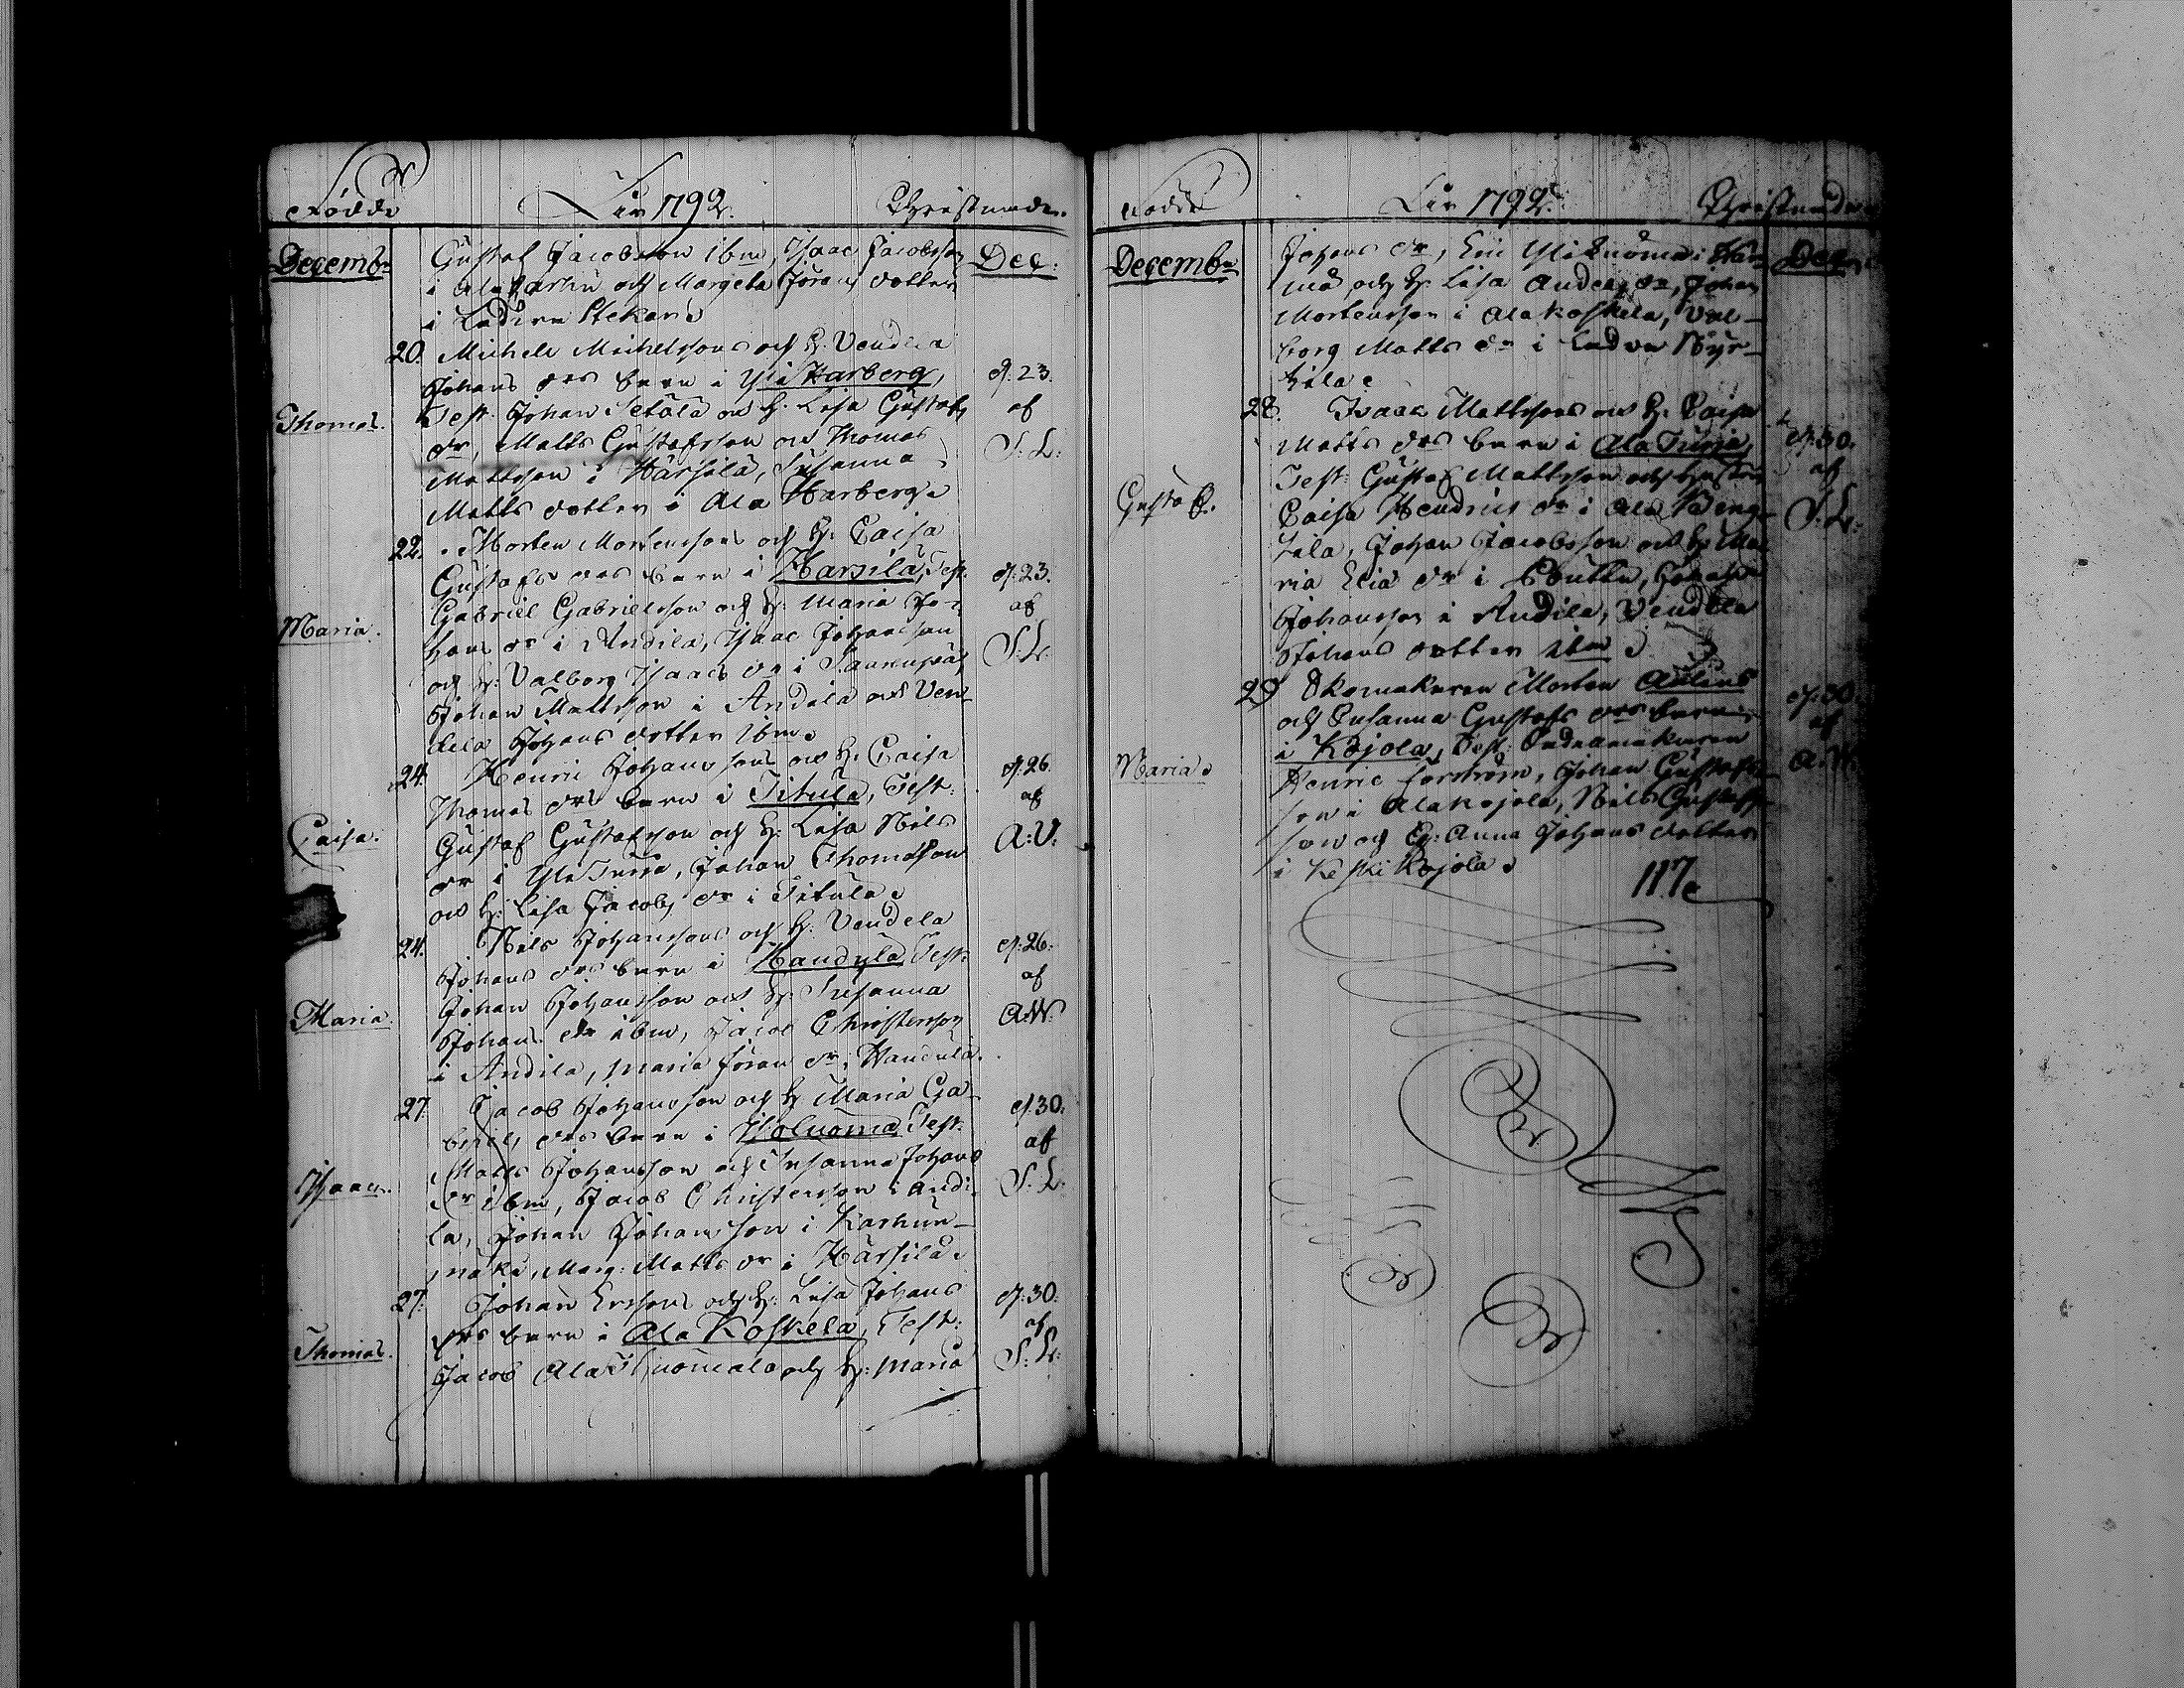 Födde
År 1792.
Christnade.
Decemb:
Dec:
Gustaf Jacobsson ibm, Isaac Jacobsson
i Ala och Margeta Jörans dotter
i Ladun
20. Michels Michelssons och H: Vendela
Johans drs barn i Yli Harberg,
d. 23.
Thomas.
Test. Johan Setälä och H. Lisa Gustafs
af
dr, Matts Gustafsson och Thomas
S: L:
Mattsson i Härsilä, Susanna
Matts dotter i Ala Harberg.
22. Morten Mortenssons och H: Caisa
Gustafs drs barn i Harsila, Test.
d. 23.
Gabriel Gabrielsson och H: Maria Jo-
af
Maria.
hans dr i Andila, Isaac Johansson
S: L:
och H: Valborg Isaacs dr i
Johan Mattsson i Andila och Ven-
dela Johans dotter ibm.
24. Henric Johanssons och H: Caisa
d. 26.
Thomas drs barn i Titula, Test:
af
Caisa.
Gustaf Gustafsson och H: Lisa Nils
A: V:
dr i Yli Turra, Johan Thomasson
och H: Lisa Jacobs dr i Titula.
24. Nils Johanssons och H: Vendela
d. 26.
Johans drs barn i Handula Test:
af
Maria.
Johan Johansson och H: Susanna
A:W:
Johans dr ibm, Jacob Christersson
i Andila, Maria Jörans dr i Handula.
27. Jacob Johansson och H Maria Ga-
d. 30.
briels drs barn i Test:
af
Isaac.
Matts Johansson och Susanna Johans
dr ibm, Jacob Christersson i Andi-
S. L.
la, Johan Johansson i Karhun-
mäki, Marg: Matts dr i Härsilä.
27. Johan Erssons och H: Lisa Johans
d. 30.
drs barn i Ala Koskela, Test:
af
Thomas.
Jacob Ala Tuomala och H: Maria
S: L:
Födde
År 1792.
Christnade
Decemb:
Dec:
Johans dr, Eric i
och H: Lisa Anders dr, Johan
Mortensson i Ala Koskela, Val-
borg Matts dr i Ladun Kyr-
kila.
28. Isaac Mattssons och H: Caisa
d. 30.
Matts drs barn i Ala Turra,
af
Gustaf.
Test: Gustaf Mattsson och hustru
S: L:
Caisa Hendrics dr i Ala Beng-
tila, Johan Jacobsson och H: Ma-
ria Elia dr i Johan
Johansson i Andila, Vendela
Johans dotter ibm.
29 Skomakaren Morten
d. 30.
och Susanna Gustafs drs barn
af
Maria.
i Kojola, Test:
A: W:
Henric Forström, Johan Gustafs-
son i Ala Kojola, Nils Gustafs-
son och H: Anna Johans dotter
i Keski Kojola.
117.